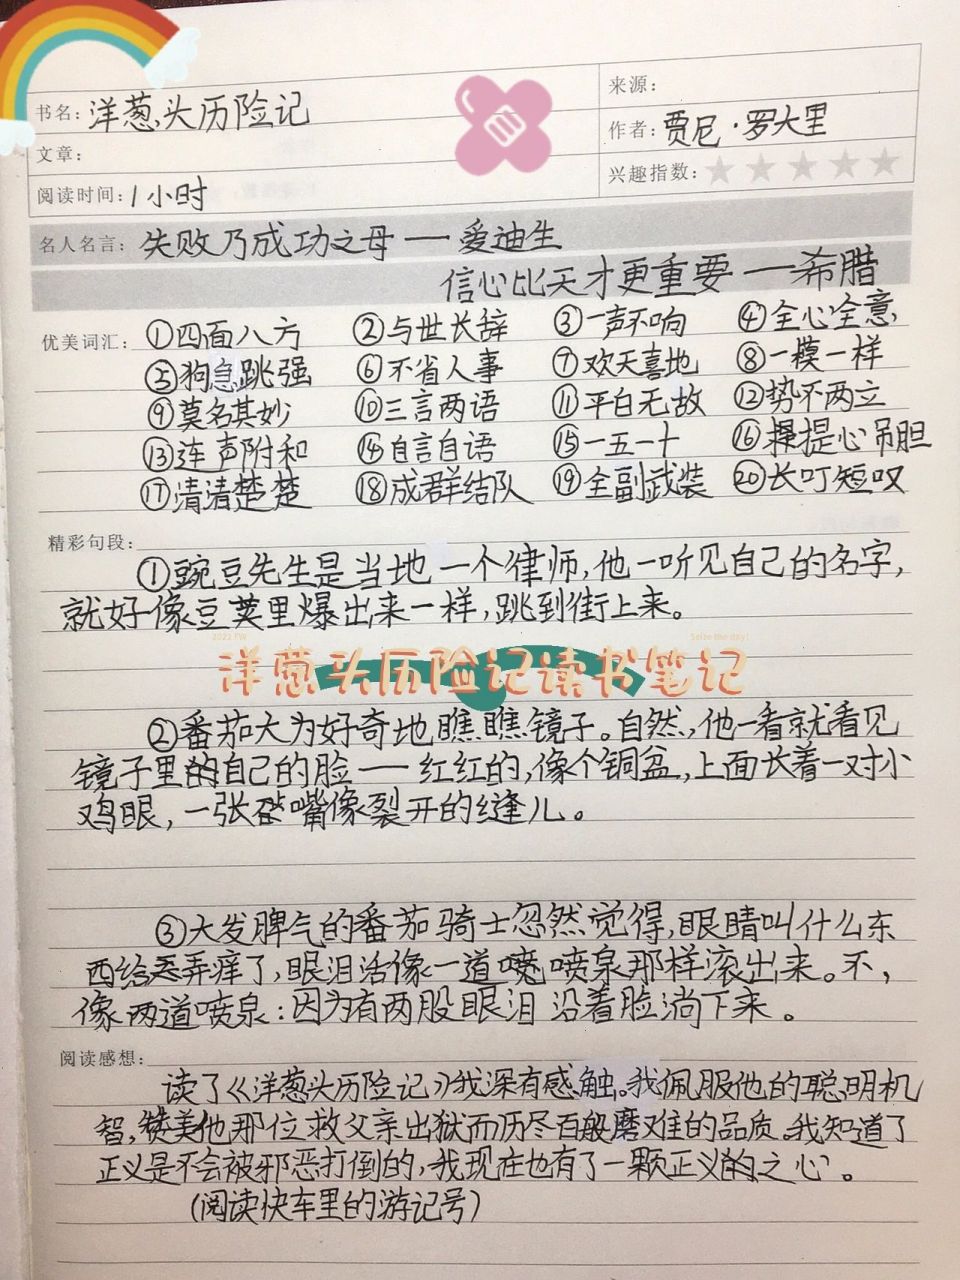 书名：洋葱头历险记
来源：
作者：贾尼·罗大里
文章：
兴趣指数：
阅读时间：1小时
名人名言：失败乃成功之母——爱迪生
信心比天才更重要——希腊
优美词汇：①四面八方 ②与世长辞 ③一声不响 ④全心全意
⑤狗急跳强 ⑥不省人事 ⑦欢天喜地 ⑧一模一样
⑨莫名其妙 ⑩三言两语 ⑪平白无故 ⑫势不两立
⑬连声附和 ⑭自言自语 ⑮一五一十 ⑯提心吊胆
⑰清清楚楚 ⑱成群结队 ⑲全副武装 ⑳长叮短叹
精彩句段：
①豌豆先生是当地一个律师，他一听见自己的名字，
就好像豆荚里爆出来一样，跳到街上来。
2022 FW
Seize the day!
洋葱头历险记读书笔记
②番茄大为好奇地瞧瞧镜子。自然，他一看就看见
镜子里的自己的脸——红红的，像个铜盆，上面长着一对小
鸡眼，一张嘴像裂开的缝儿。
③大发脾气的番茄骑士忽然觉得，眼睛叫什么东
西给弄痒了，眼泪活像一道喷泉那样滚出来。不，
像两道喷泉：因为有两股眼泪沿着脸淌下来。
阅读感想：
读了《洋葱头历险记》我深有感触。我佩服他的聪明机
智，赞美他那位救父亲出狱而历尽百般磨难的品质。我知道了
正义是不会被邪恶打倒的，我现在也有了一颗正义的之心。
（阅读快车里的游记号）